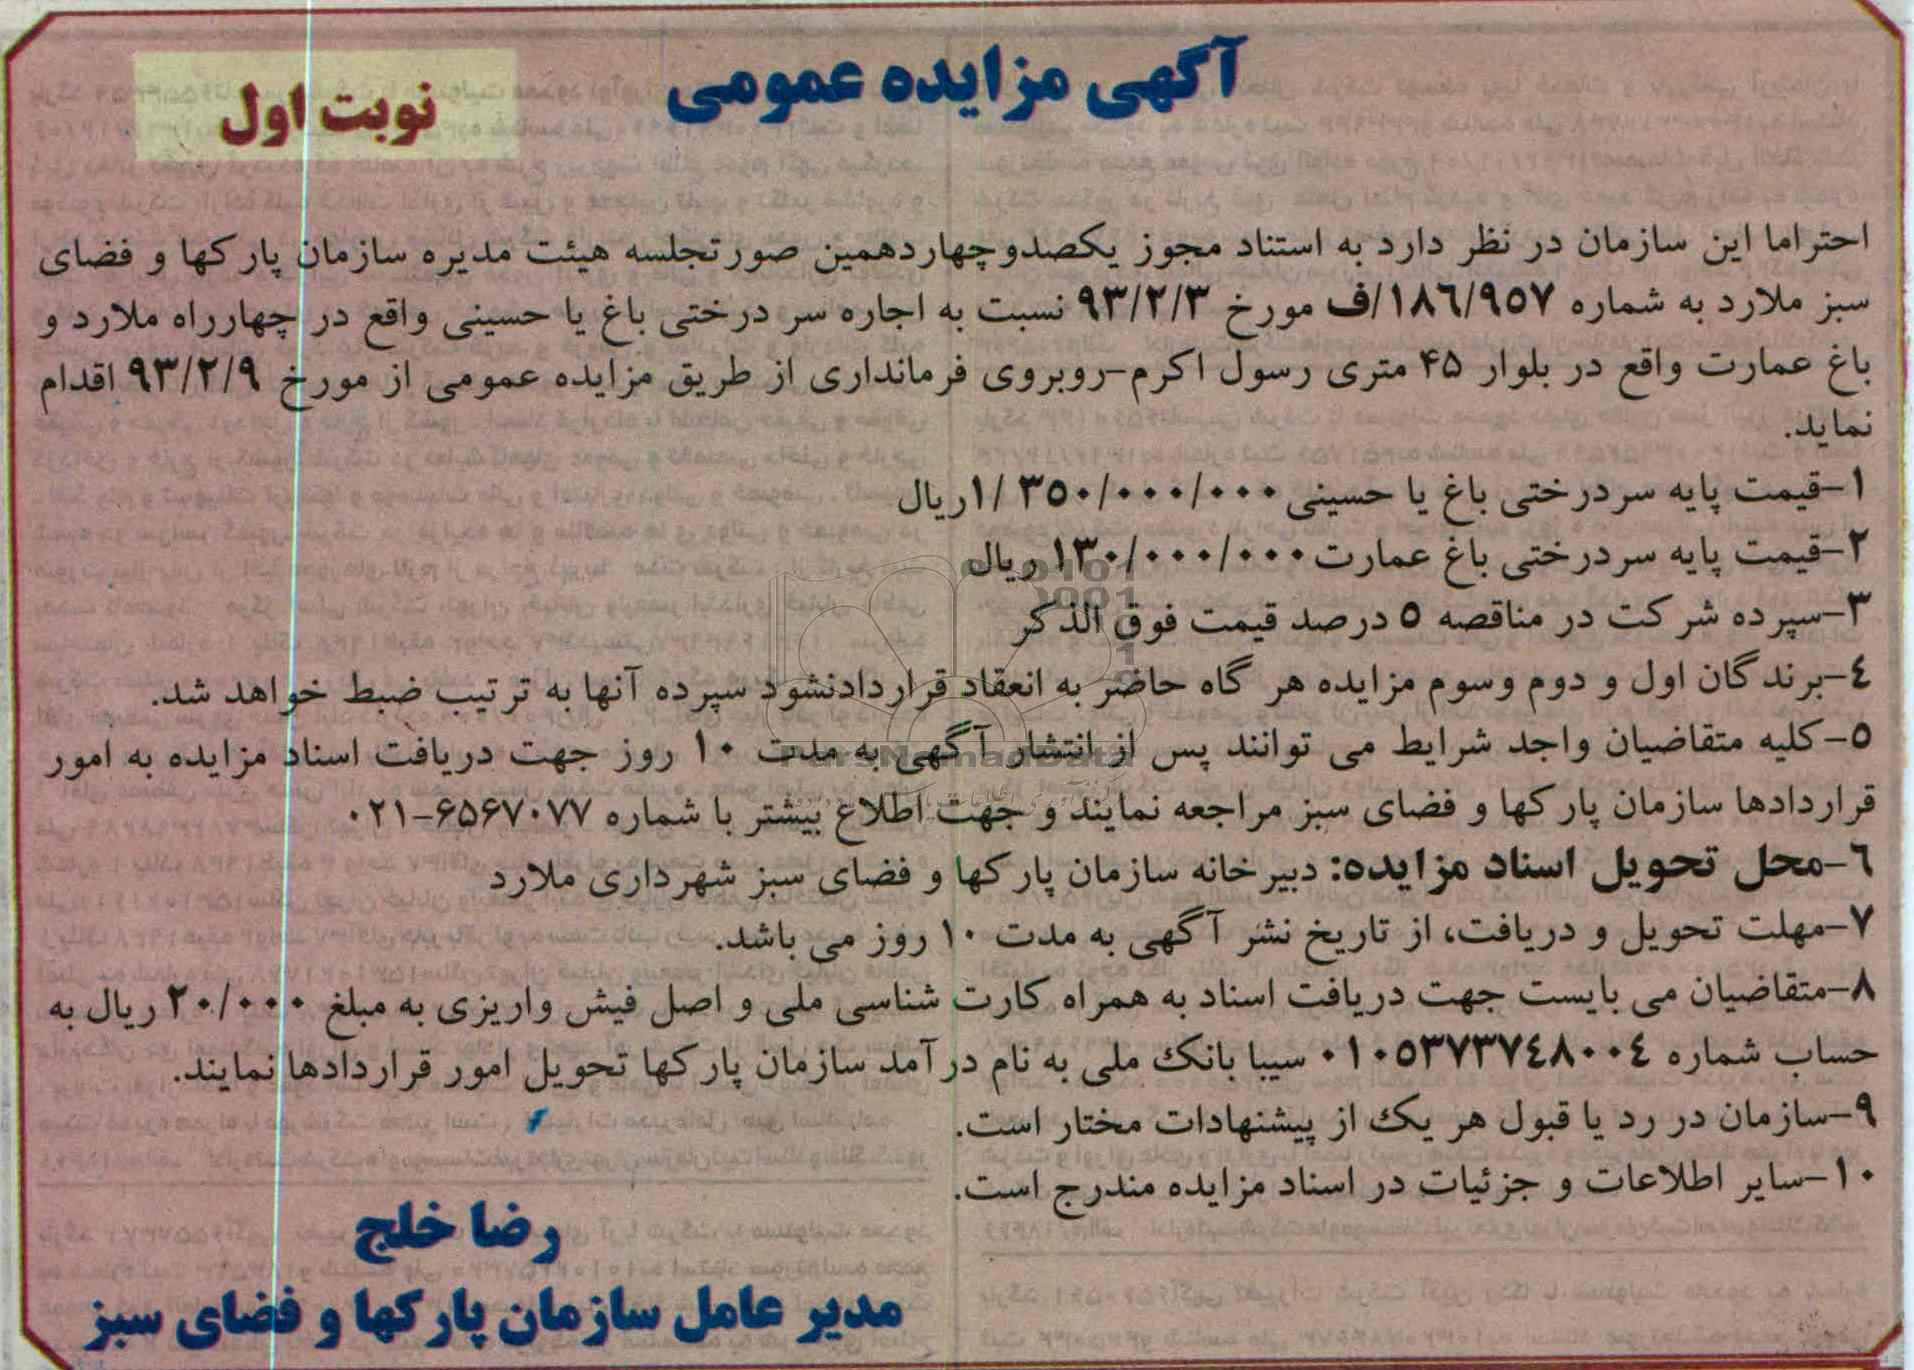 آگهی مزایده عمومی
نوبت اول
احتراما این سازمان در نظر دارد به استناد مجوز یکصدوچهاردهمین صورتجلسه هیئت مدیره سازمان پارکها و فضای
سبز ملارد به شماره ۱۸۶/۹۵۷/ف مورخ ۹۳/۲/۳ نسبت به اجاره سر درختی باغ یا حسینی واقع در چهارراه ملارد و
باغ عمارت واقع در بلوار ۴۵ متری رسول اکرم-روبروی فرمانداری از طریق مزایده عمومی از مورخ ۹۳/۲/۹ اقدام
نماید.
۱-قیمت پایه سردرختی باغ یا حسینی ۱/۳۵۰/۰۰۰/۰۰۰ریال
۲-قیمت پایه سردرختی باغ عمارت ۱۳۰/۰۰۰/۰۰۰ ریال
۳-سپرده شرکت در مناقصه ۵ درصد قیمت فوق الذکر
۴-برندگان اول و دوم وسوم مزایده هر گاه حاضر به انعقاد قراردادنشود سپرده آنها به ترتیب ضبط خواهد شد.
۵-کلیه متقاضیان واجد شرایط می توانند پس از انتشار آگهی به مدت ۱۰ روز جهت دریافت اسناد مزایده به امور
قراردادها سازمان پارکها و فضای سبز مراجعه نمایند و جهت اطلاع بیشتر با شماره ۶۵۶۷۰۷۷-۰۲۱
۶-محل تحویل اسناد مزایده: دبیرخانه سازمان پارکها و فضای سبز شهرداری ملارد
۷-مهلت تحویل و دریافت، از تاریخ نشر آگهی به مدت ۱۰ روز می باشد.
۸-متقاضیان می بایست جهت دریافت اسناد به همراه کارت شناسی ملی و اصل فیش واریزی به مبلغ ۲۰/۰۰۰ ریال به
حساب شماره ۰۱۰۵۳۷۳۷۴۸۰۰۴ سیبا بانک ملی به نام درآمد سازمان پارکها تحویل امور قراردادها نمایند.
۹-سازمان در رد یا قبول هر یک از پیشنهادات مختار است.
۱۰-سایر اطلاعات و جزئیات در اسناد مزایده مندرج است.
رضا خلج
مدیر عامل سازمان پارکها و فضای سبز
ParsNamadData